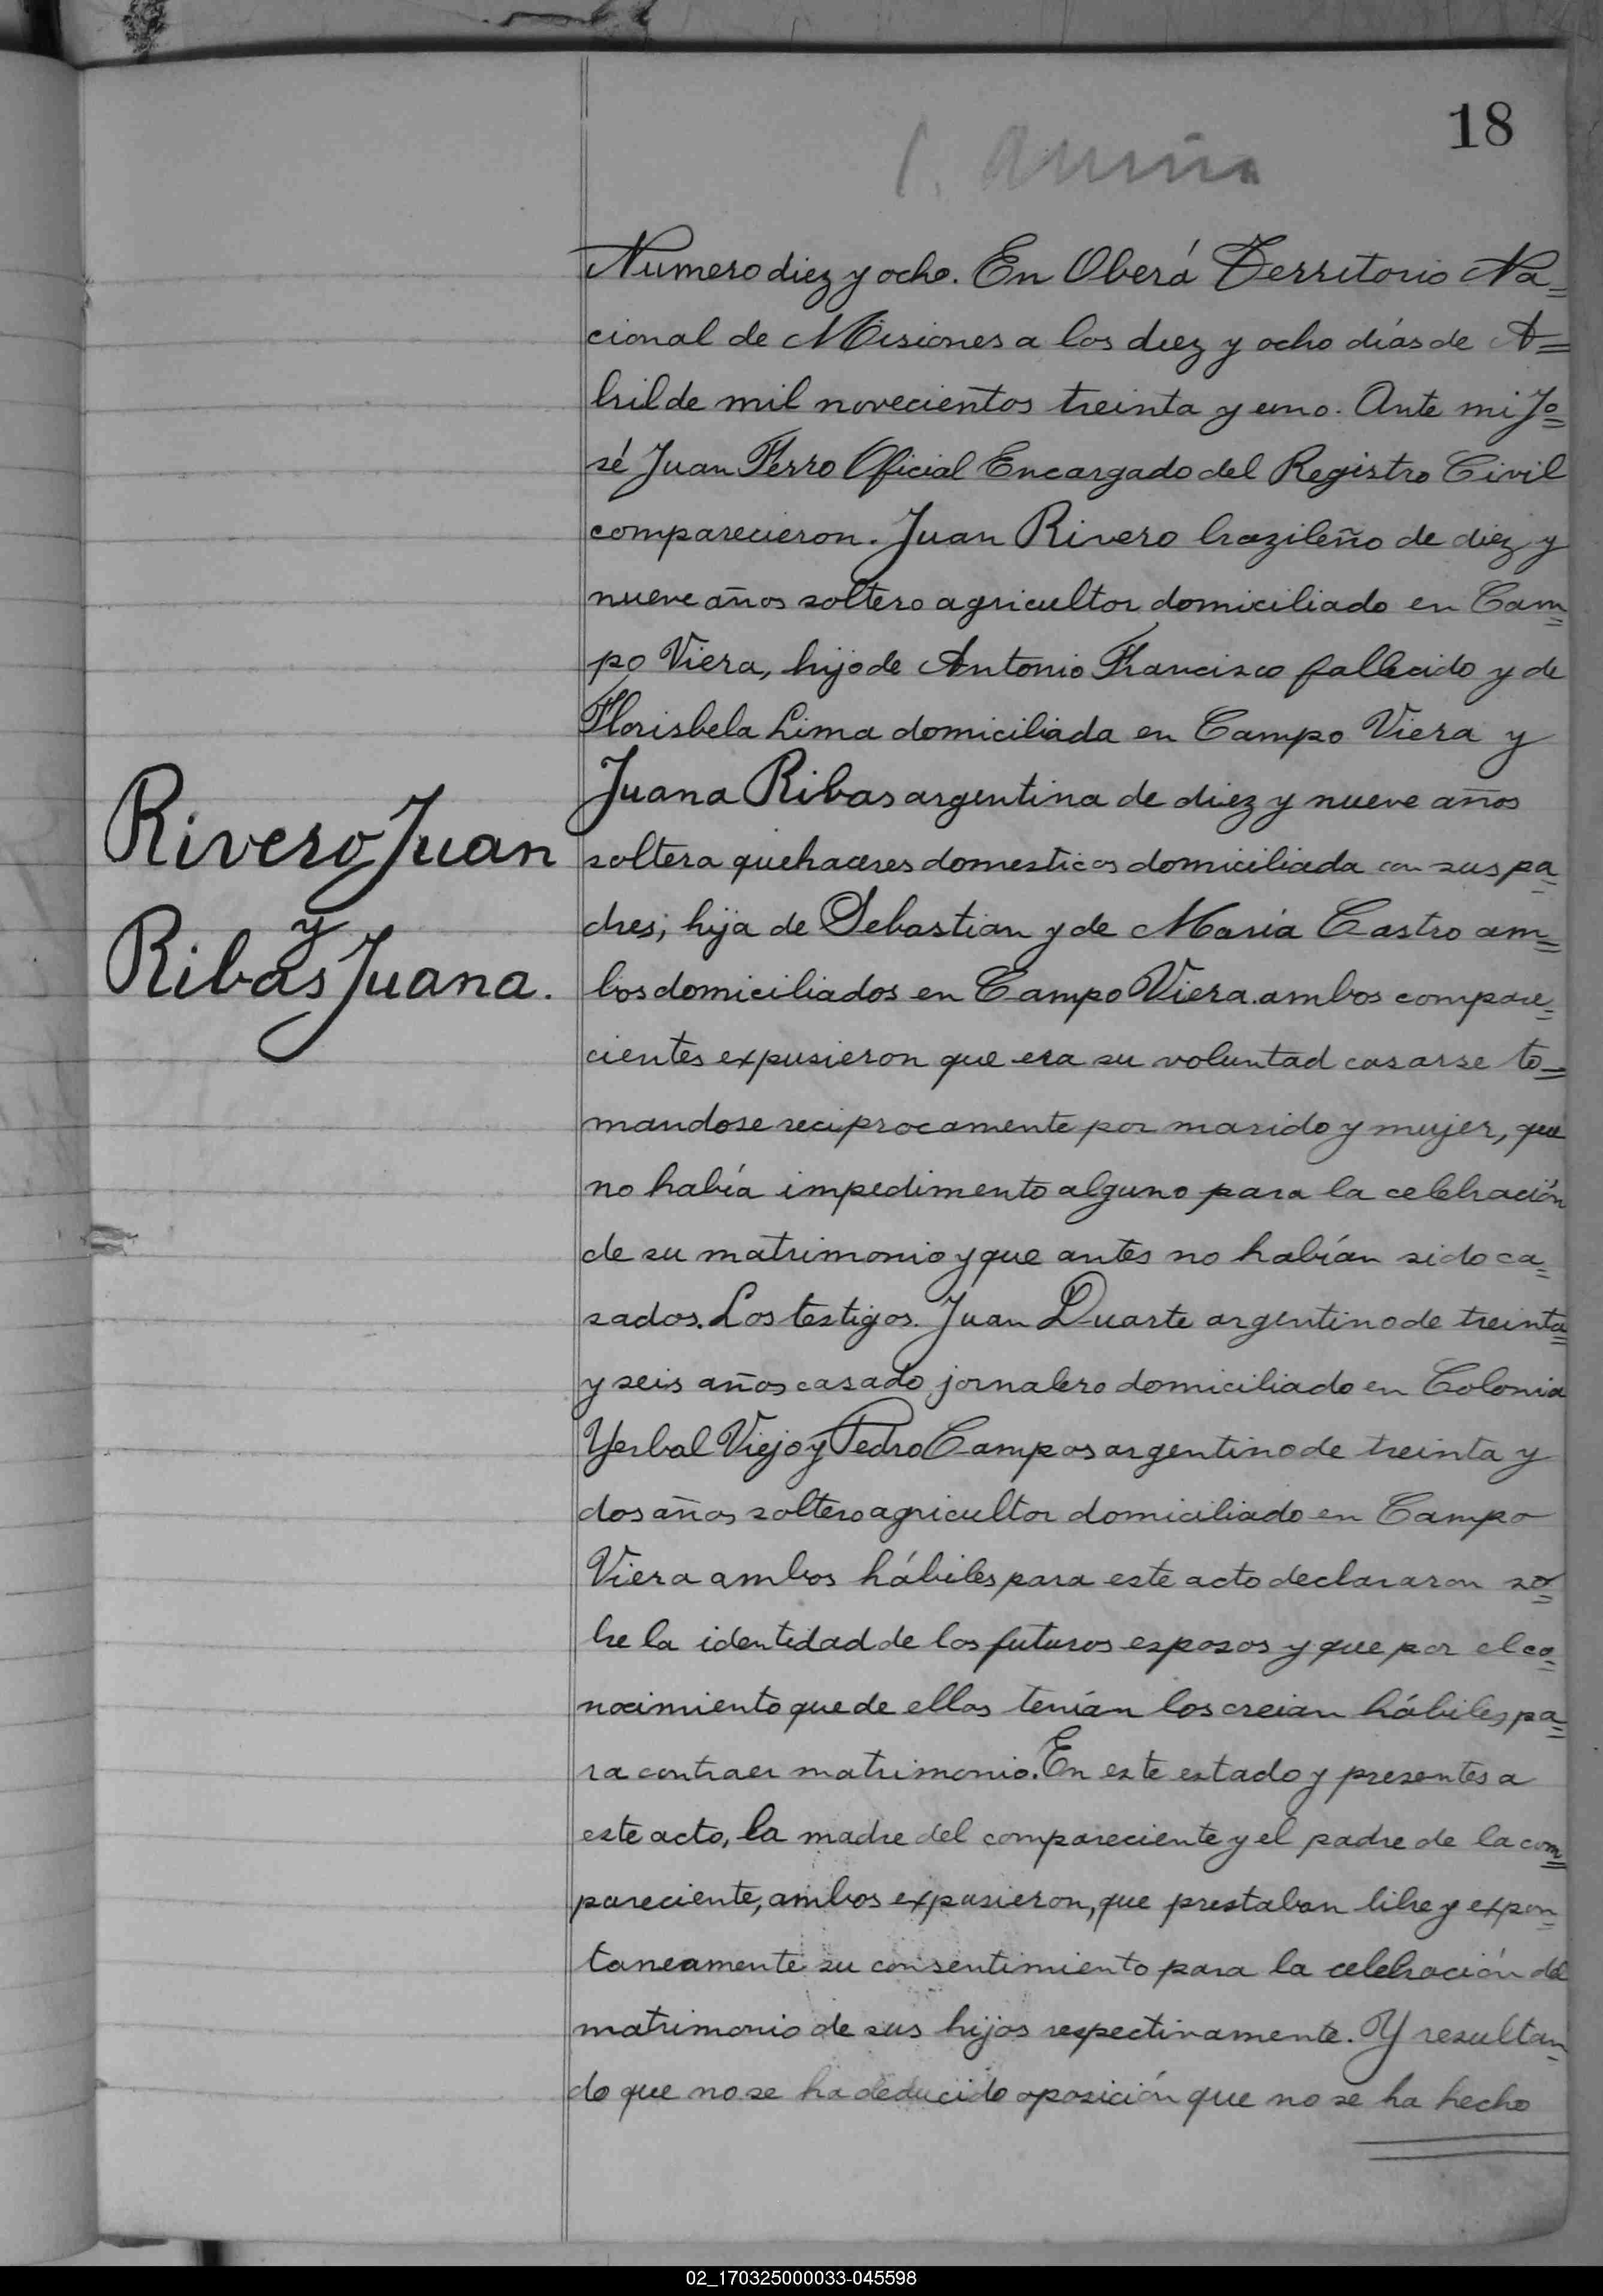 18
Numero diez y ocho. En Oberá Territorio Na=
cional de Misiones a los diez y ocho días de A=
bril de mil novecientos treinta y uno. Ante mi Jo=
sé Juan Ferro Oficial Encargado del Registro Civil
comparecieron. Juan Rivero brazileño de diez y
nueve años soltero agricultor domiciliado en Cam=
po Viera, hijo de Antonio Francisco fallecido y de
Florisbela Lima domiciliada en Campo Viera y
Juana Ribas argentina de diez y nueve años
soltera quehaceres domesticos domiciliada con sus pa=
dres; hija de Sebastian y de María Castro am=
bos domiciliados en Campo Viera. ambos compare=
cientes expusieron que era su voluntad casarse to=
mandose reciprocamente por marido y mujer, que
no había impedimento alguno para la celebración
de su matrimonio y que antes no habían sido ca=
sados. Los testigos. Juan Duarte argentino de treinta
y seis años casado jornalero domiciliado en Colonia
Yerbal Viejo y Pedro Campos argentino de treinta y
dos años soltero agricultor domiciliado en Campo
Viera ambos hábiles para este acto declararon so=
bre la identidad de los futuros esposos y que por el co=
nocimiento que de ellos tenían los creian hábiles pa=
ra contraer matrimonio. En este estado y presentes a
este acto, la madre del compareciente y el padre de la com=
pareciente, ambos expusieron, que prestaban libre y expon=
taneamente su consentimiento para la celebración del
matrimonio de sus hijos respectivamente. Y resultan=
do que no se ha deducido oposición que no se ha hecho
Rivero Juan
y
Ribas Juana.
02_170325000033-045598